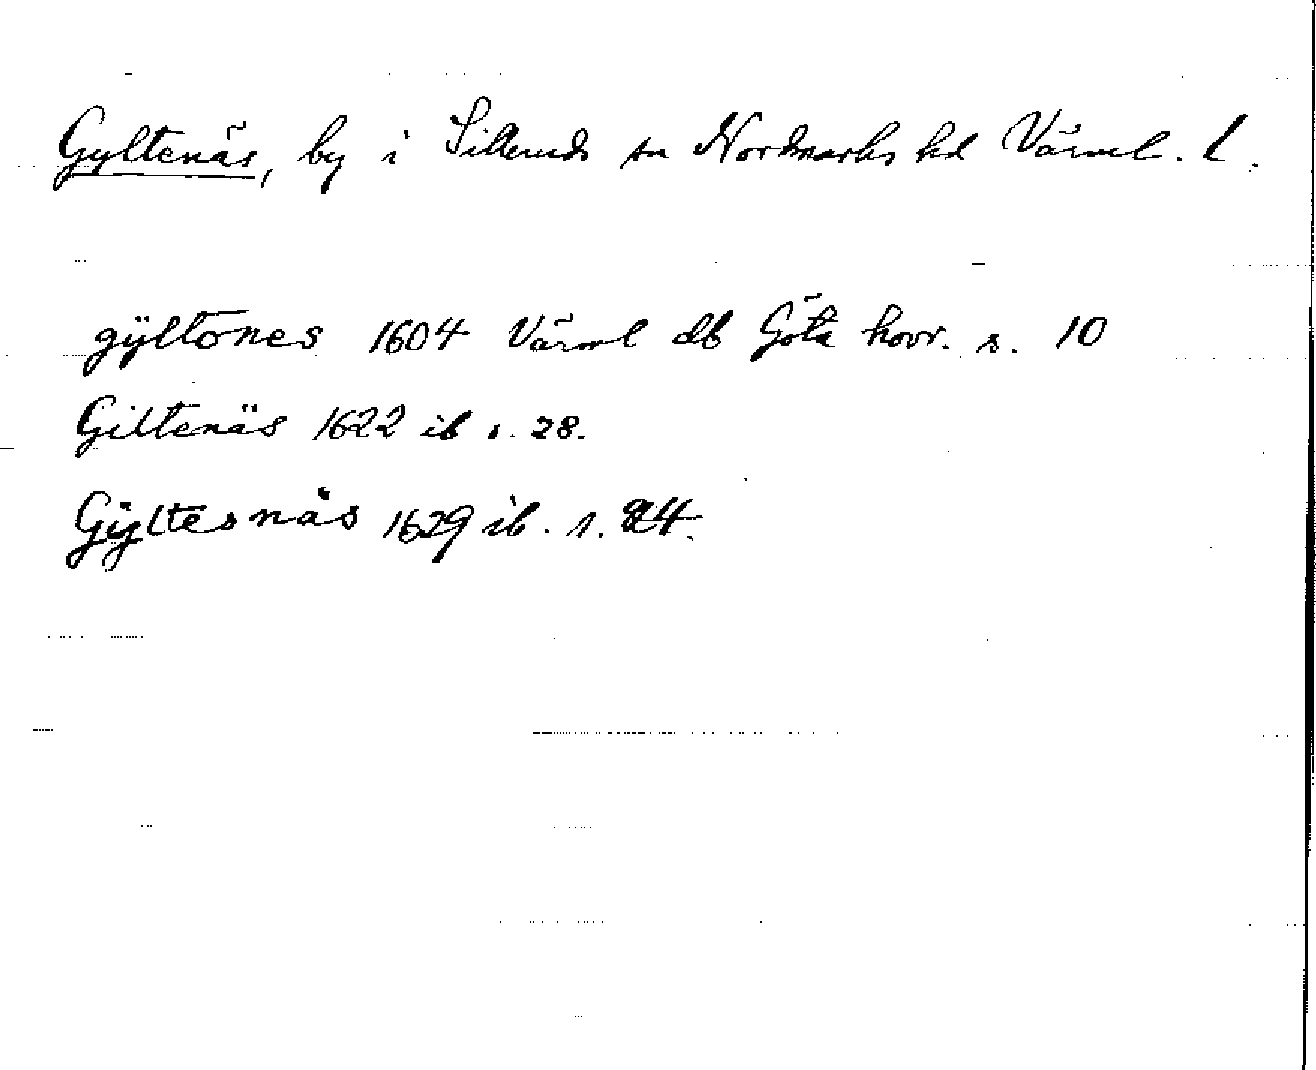 Gyltenäs, by i Sillerud sn Nordmarks hd Värml. l.
gÿltönes 1604 Värml db Göta hovr. s. 10
Giltenäs 1622 ib s. 28.
Gÿltesnäs 1629 ib. s. 24.